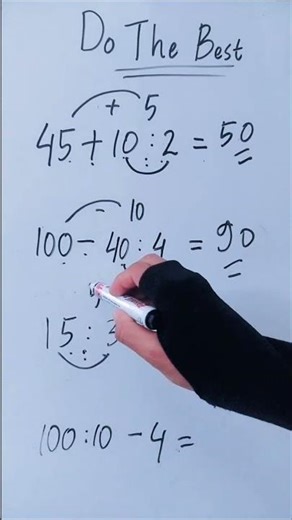 Do The Best
+ 5
45 + 10 : 2 = 50
- 10
100 - 40 : 4 = 90
15 : 3
100 : 10 - 4 =